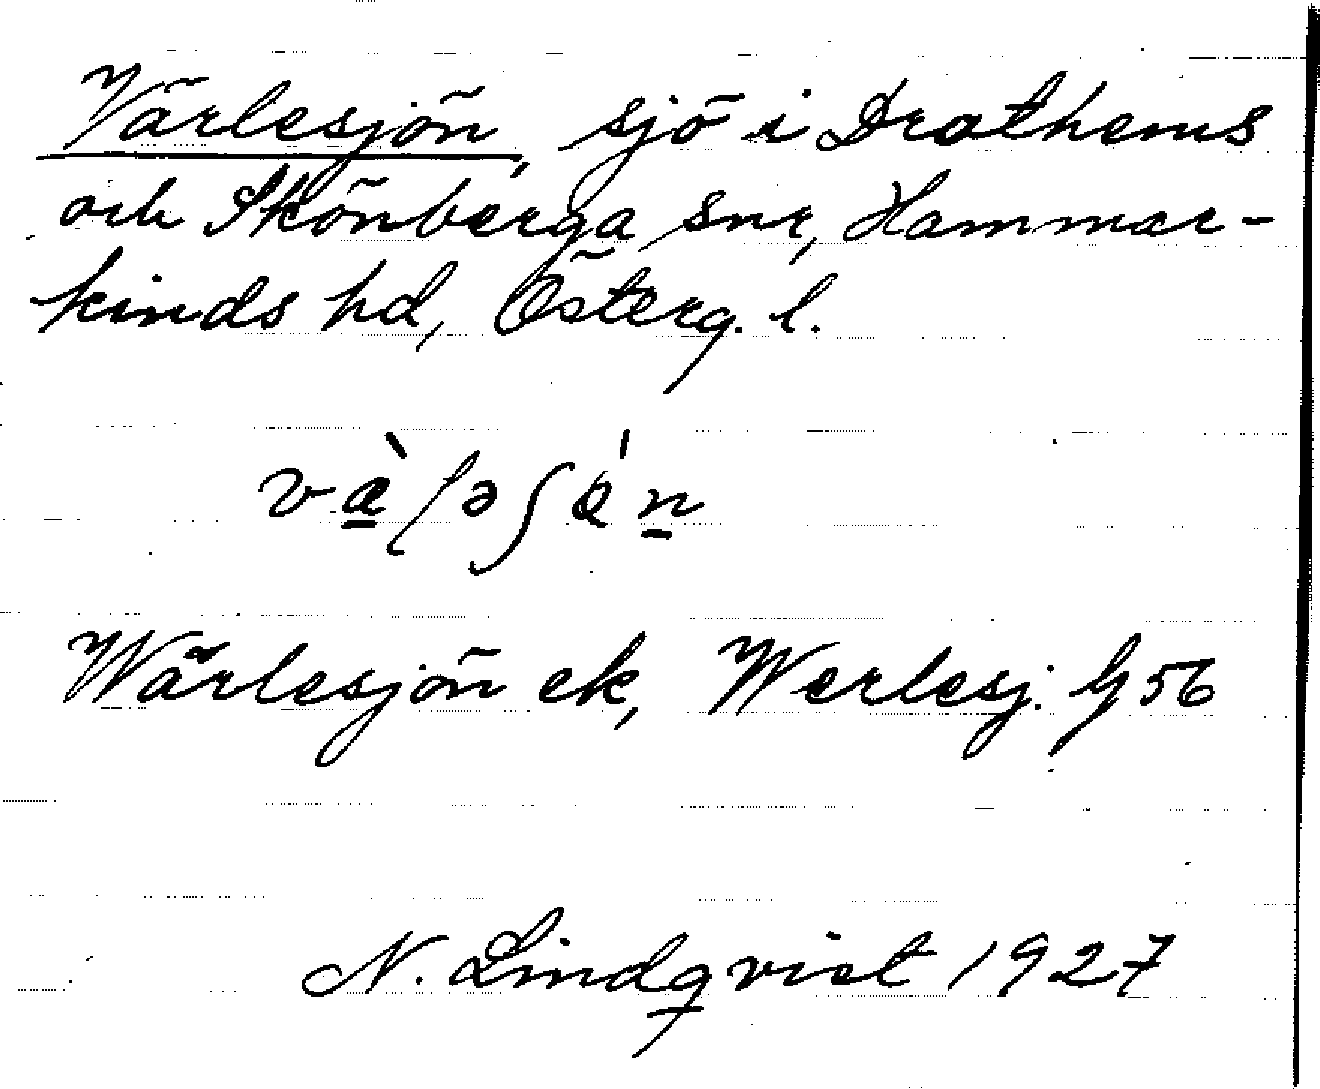 Värlesjön, sjö i Drothems
och Skönberga snr, Hammar-
kinds hd, Österg. l.
Wärlesjön ek, Werlesj. G 56
N. Lindqvist 1927